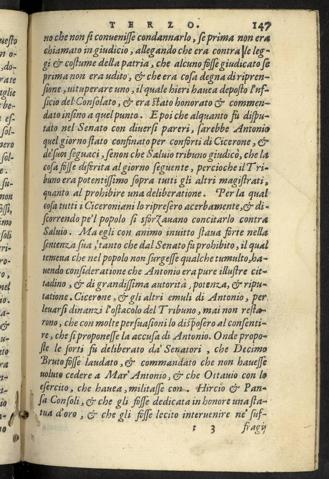 TERZO. 147
no che non si conuenisse condannarlo, se prima non era
chiamato in giudicio, allegando che era contra le leg-
gi & costume della patria, che alcuno fosse giudicato se
prima non era udito, & che era cosa degna di ripren-
sione, uituperare uno, il quale hieri haueua deposto l'uf-
ficio del Consolato, & era stato honorato & commen-
dato insino a quel punto. E poi che alquanto fu dispu-
tato nel Senato con diuersi pareri, sarebbe Antonio
quel giorno stato confinato per conforti di Cicerone, &
de suoi seguaci, se non che Saluio tribuno giudicò, che la
cosa fosse differita al giorno seguente, percioche il Tri-
buno era potentissimo sopra tutti gli altri magistrati,
quanto al prohibire una deliberatione. Per la qual
cosa tutti i Ciceroniani lo ripresero acerbamente, & di-
scorrendo pe'l popolo si sforzauano concitarlo contra
Saluio. Ma egli con animo inuitto staua forte nella
sentenza sua, tanto che dal Senato fu prohibito, il qual
temena che nel popolo non surgesse qualche tumulto, ha-
uendo consideratione che Antonio era pure illustre cit-
tadino, & di grandissima autorità, potenza, & ripu-
tatione. Cicerone, & gli altri emuli di Antonio, per
leuarsi dinanzi l'ostacolo del Tribuno, mai non resta-
rono, che con molte persuasioni lo disposero al consenti-
re, che si proponesse la accusa di Antonio. Onde propo-
ste le sorti fu deliberato da' Senatori, che Decimo
Bruto fosse laudato, & commandato che non hauesse
uoluto cedere a Mar' Antonio, & che Ottauio con lo
esercito, che haueua, militasse con Hircio & Pan-
sa Consoli, & che gli fosse dedicata in honore una sta-
tua d'oro, & che gli fosse lecito interuenire ne' suf-
t 3 fragij